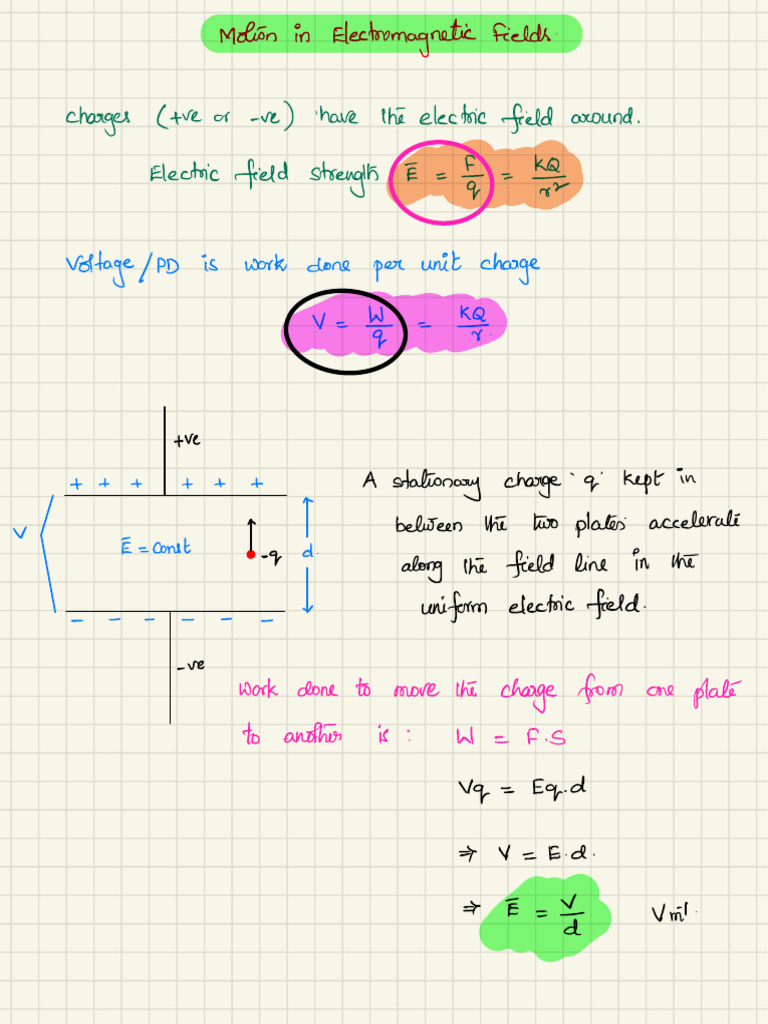 Motion in Electromagnetic Fields.
charges (+ve or -ve) have the electric field around.
Electric field strength Ē = F/q = KQ/r²
Voltage/PD is work done per unit charge
V = W/q = KQ/r.
+ve
+ + + + + +
V
Ē = const
-q
d.
- - - - - -
-ve
A stationary charge 'q' kept in
between the two plates accelerate
along the field line in the
uniform electric field.
work done to move the charge from one plate
to another is : W = F.S
Vq = Eq.d
⇒ V = E.d.
⇒ Ē = V/d Vm⁻¹.